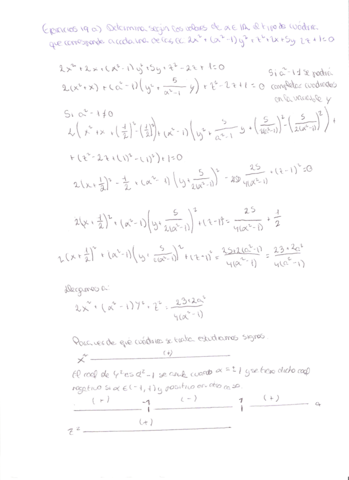 Ejercicios 19 a) Determina según los valores de α ∈ ℝ, el tipo de cuádrica
que corresponde a cada una de las ec 2x² + (α²-1)y² + z² + 2x + 5y - 2z + 1 = 0
2x² + 2x + (α²-1)y² + 5y + z² - 2z + 1 = 0
2(x²+x) + (α²-1)(y² + 5/(α²-1) y) + z² - 2z + 1 = 0
Si α²-1≠0 se podrá
completar cuadrados
en la variable y
Si α²-1≠0
2(x² + x + (1/2)² - (1/2)²) + (α²-1)(y² + 5/(α²-1) y + (5/2(α²-1))² - (5/2(α²-1))²) +
+ (z² - 2z + (1)² - (1)²) + 1 = 0
2(x + 1/2)² - 1/2 + (α²-1)(y + 5/2(α²-1))² - 25/4(α²-1) + (z-1)² = 0
2(x + 1/2)² + (α²-1)(y + 5/2(α²-1))² + (z-1)² = 25/4(α²-1) + 1/2
2(x + 1/2)² + (α²-1)(y + 5/2(α²-1))² + (z-1)² = 25+2(α²-1)/4(α²-1) = 23+2α²/4(α²-1)
Llegamos a:
2x² + (α²-1)y² + z² = 23+2α²/4(α²-1)
Para ver de que cuádrica se trata estudiamos signos
x² (+)
El coef de y² es α²-1 se anula cuando α = ±1 y se tiene dicho coef
negativo si α ∈ (-1, 1) y positivo en otro caso
(+) -1 (-) 1 (+) α
z = (+)